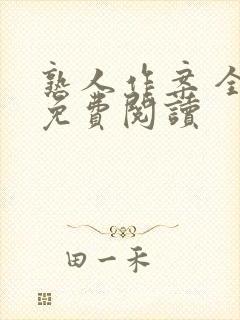 熟人作案全
免費閱讀
田一禾